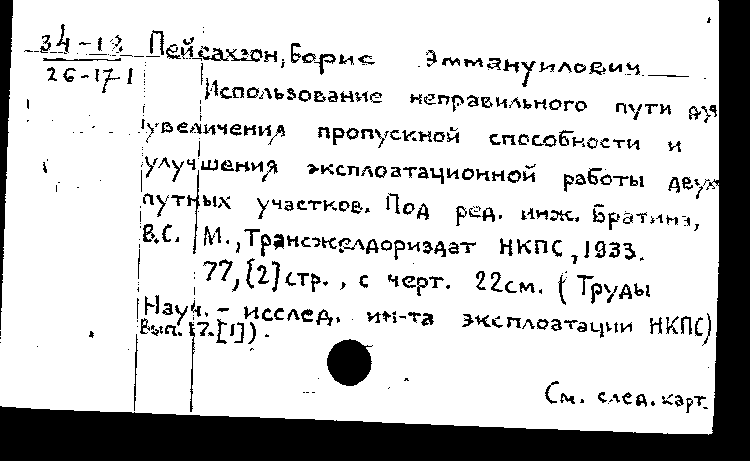 34-18
26-17-1
Пейсахзон, Борис Эммануилович
Использование неправильного пути для
увеличения пропускной способности и
улучшения эксплоатационной работы двух-
путных участков. Под ред. инж. Братина,
В.С. М., Трансжелдориздат НКПС, 1933.
77, [2] стр., с черт. 22см. (Труды
Науч.-исслед. ин-та эксплоатации НКПС)
Вып. 17. [1]).
См. след. карт.